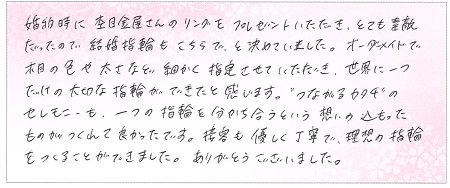 婚約時に杢目金屋さんのリングをプレゼントいただき、とても素敵
だったので結婚指輪もこちらで、と決めていました。オーダーメイドで
木目の色や太さなど細かく指定させていただき、世界に一つ
だけの大切な指輪ができたと感じます。"つながるカタチ"の
セレモニーも、一つの指輪を分かち合うという想いの込もった
ものがつくれて良かったです。接客も優しく丁寧で、理想の指輪
をつくることができました。ありがとうございました。